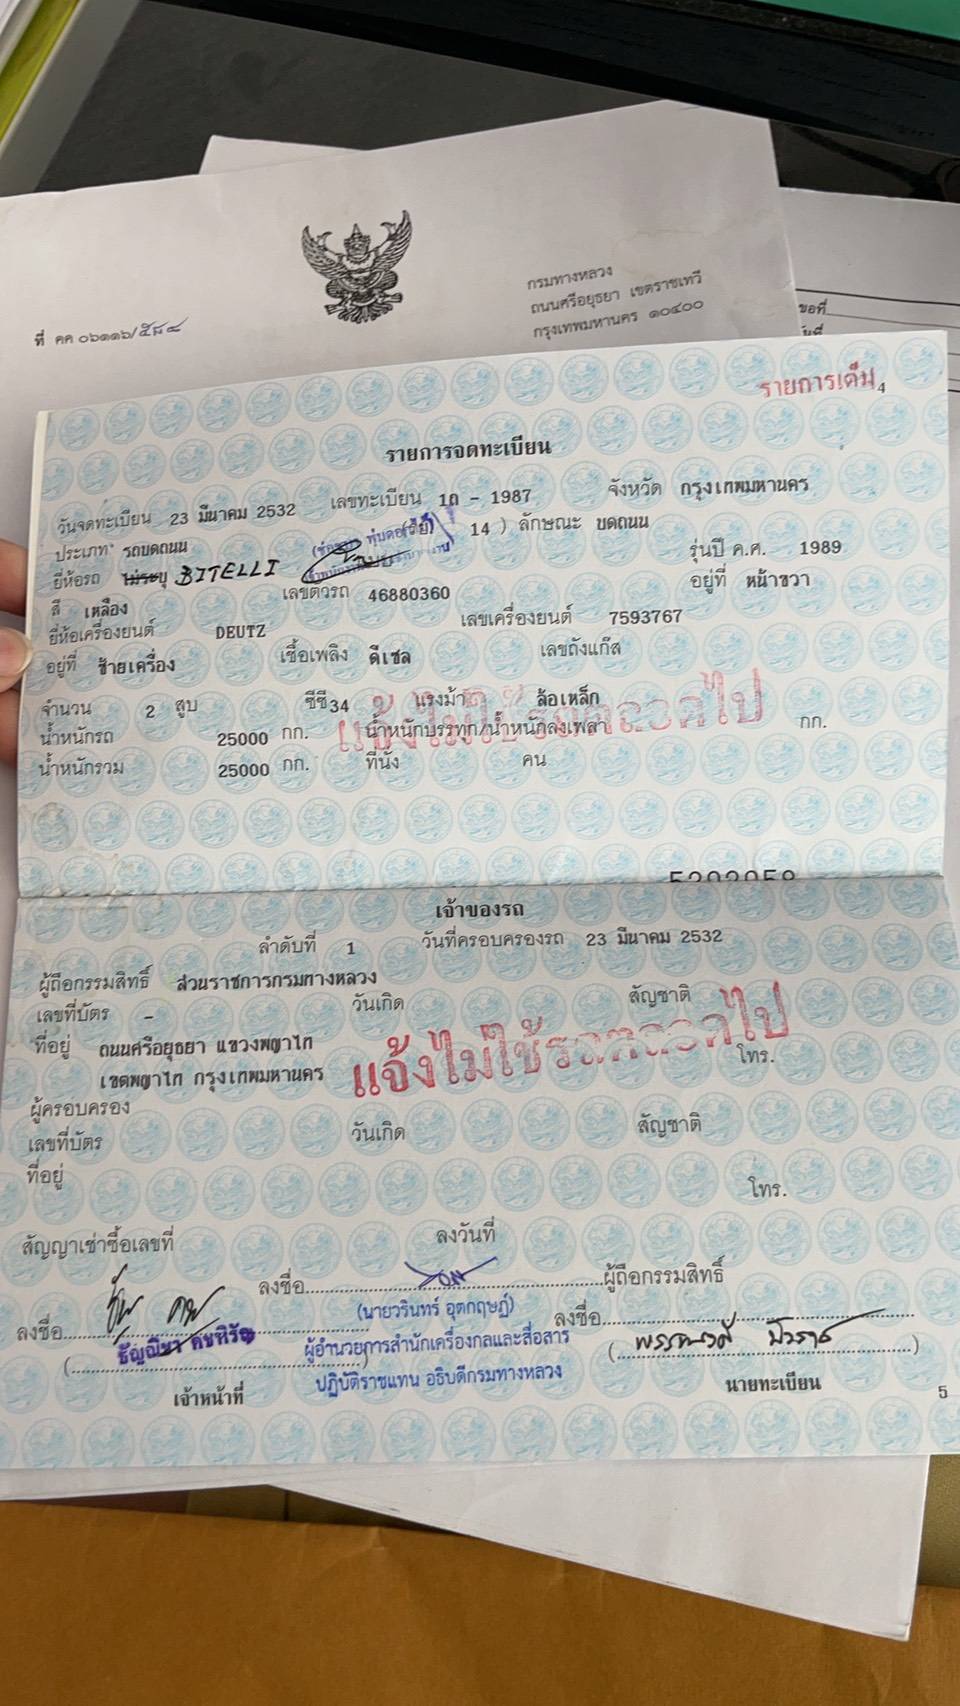 กรมทางหลวง
ถนนศรีอยุธยา เขตราชเทวี
กรุงเทพมหานคร ๑๐๔๐๐
ที่ คค ๐๖๑๑๖/๕๘๔
ขอที่
รายการเดิม 4
รายการจดทะเบียน
วันจดทะเบียน 23 มีนาคม 2532 เลขทะเบียน 1ถ - 1987 จังหวัด กรุงเทพมหานคร
ประเภท รถบดถนน 14 ) ลักษณะ บดถนน
ยี่ห้อรถ ไม่ระบุ BITELLI รุ่นปี ค.ศ. 1989
สี เหลือง เลขตัวรถ 46880360 อยู่ที่ หน้าขวา
ยี่ห้อเครื่องยนต์ DEUTZ เลขเครื่องยนต์ 7593767
อยู่ที่ ซ้ายเครื่อง เชื้อเพลิง ดีเซล เลขถังแก๊ส
จำนวน 2 สูบ ซีซี 34 แรงม้า ล้อเหล็ก
น้ำหนักรถ 25000 กก. น้ำหนักบรรทุก/น้ำหนักลงเพลา กก.
น้ำหนักรวม 25000 กก. ที่นั่ง คน
แจ้งไม่ใช้รถตลอดไป
เจ้าของรถ
ลำดับที่ 1 วันที่ครอบครองรถ 23 มีนาคม 2532
ผู้ถือกรรมสิทธิ์ ส่วนราชการกรมทางหลวง
เลขที่บัตร - วันเกิด สัญชาติ
ที่อยู่ ถนนศรีอยุธยา แขวงพญาไท
เขตพญาไท กรุงเทพมหานคร โทร.
แจ้งไม่ใช้รถตลอดไป
ผู้ครอบครอง
เลขที่บัตร วันเกิด สัญชาติ
ที่อยู่ โทร.
สัญญาเช่าซื้อเลขที่ ลงวันที่
ลงชื่อ ผู้ถือกรรมสิทธิ์
(นายวรินทร์ อุตกฤษฏ์)
ลงชื่อ ลงชื่อ
ผู้อำนวยการสำนักเครื่องกลและสื่อสาร
ปฏิบัติราชแทน อธิบดีกรมทางหลวง
เจ้าหน้าที่ นายทะเบียน 5